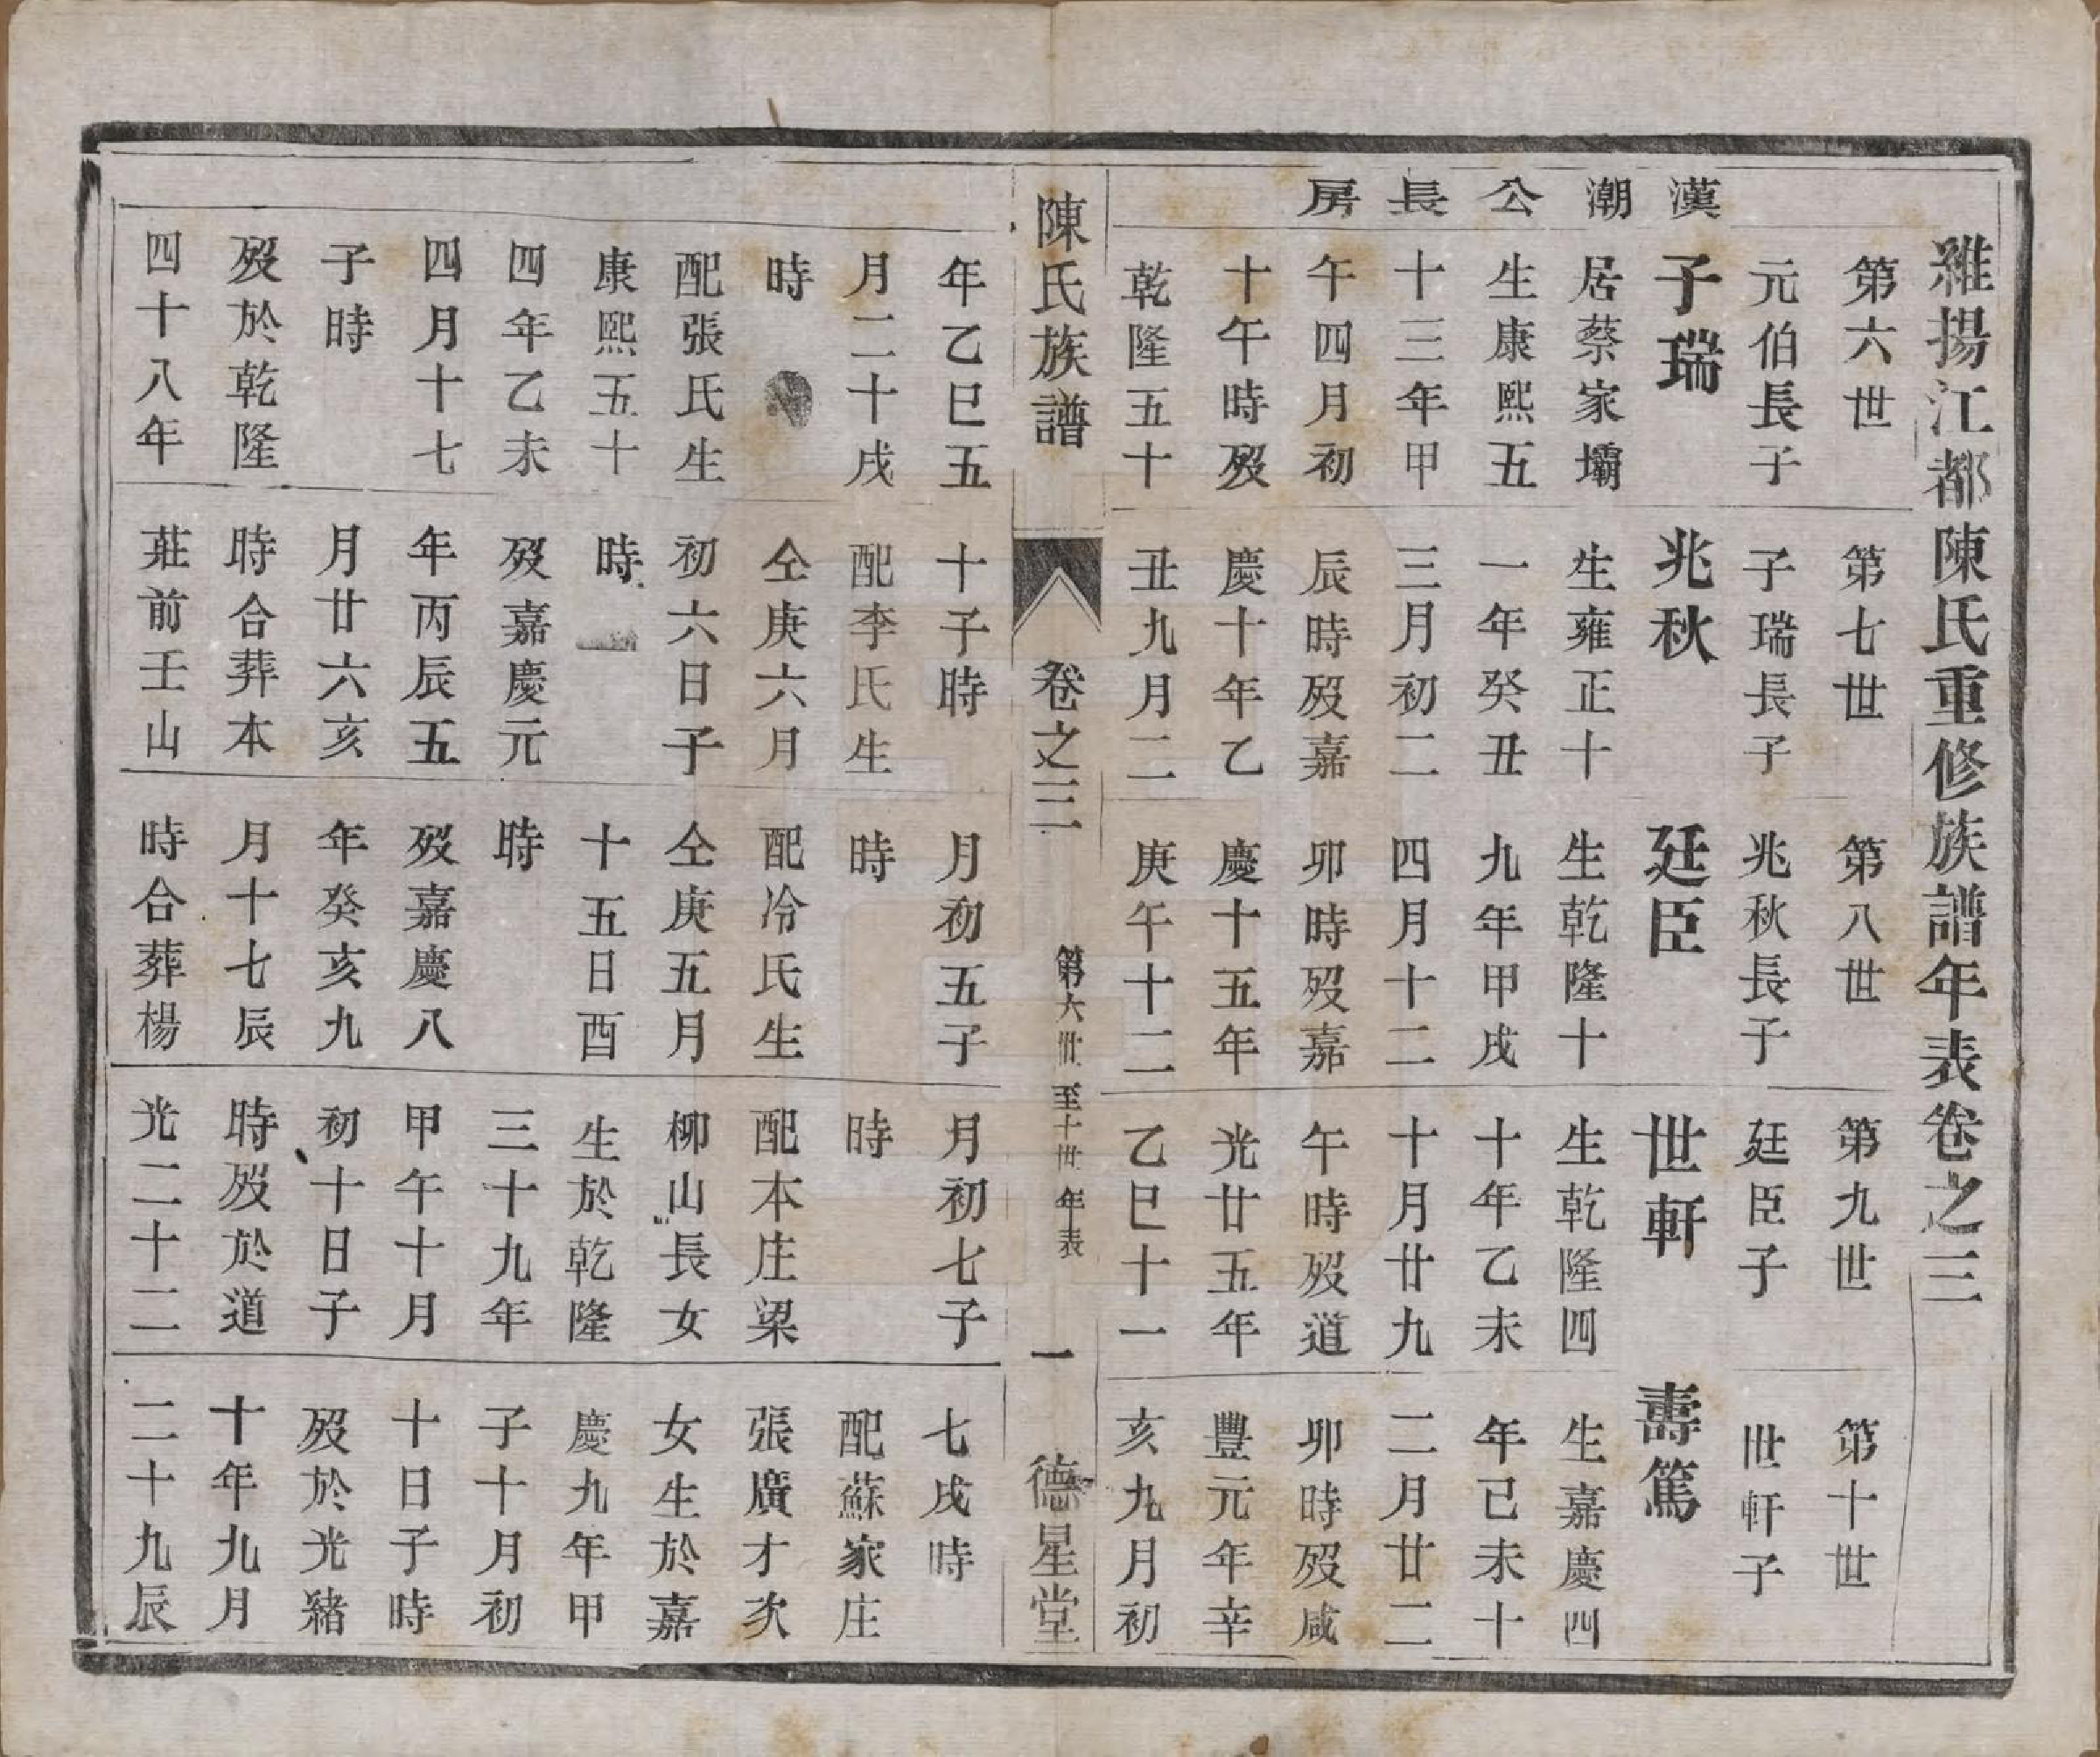 維揚江都陳氏重修族譜年表卷之三
漢潮公長房
第六世
元伯長子
子瑞
居蔡家壩
生康熙五
十三年甲
午四月初
十午時歿
乾隆五十
年乙巳五
月二十戌
時
配張氏生
康熙五十
四年乙未
四月十七
子時
歿於乾隆
四十八年
第七世
子瑞長子
兆秋
生雍正十
一年癸丑
三月初二
辰時歿嘉
慶十年乙
丑九月二
十子時
配李氏生
仝庚六月
初六日子
時
歿嘉慶元
年丙辰五
月廿六亥
時合葬本
莊前壬山
第八世
兆秋長子
廷臣
生乾隆十
九年甲戌
四月十二
卯時歿嘉
慶十五年
庚午十二
月初五子
時
配冷氏生
仝庚五月
十五日酉
時
歿嘉慶八
年癸亥九
月十七辰
時合葬楊
第九世
廷臣子
世軒
生乾隆四
十年乙未
十月廿九
午時歿道
光廿五年
乙巳十一
月初七子
時
配本庄梁
柳山長女
生於乾隆
三十九年
甲午十月
初十日子
時歿於道
光二十二
第十世
世軒子
壽篤
生嘉慶四
年己未十
二月廿二
卯時歿咸
豐元年辛
亥九月初
七戌時
配蘇家庄
張廣才次
女生於嘉
慶九年甲
子十月初
十日子時
歿於光緒
十年九月
二十九辰
陳氏族譜 卷之三 第六世至十世年表 一 德星堂